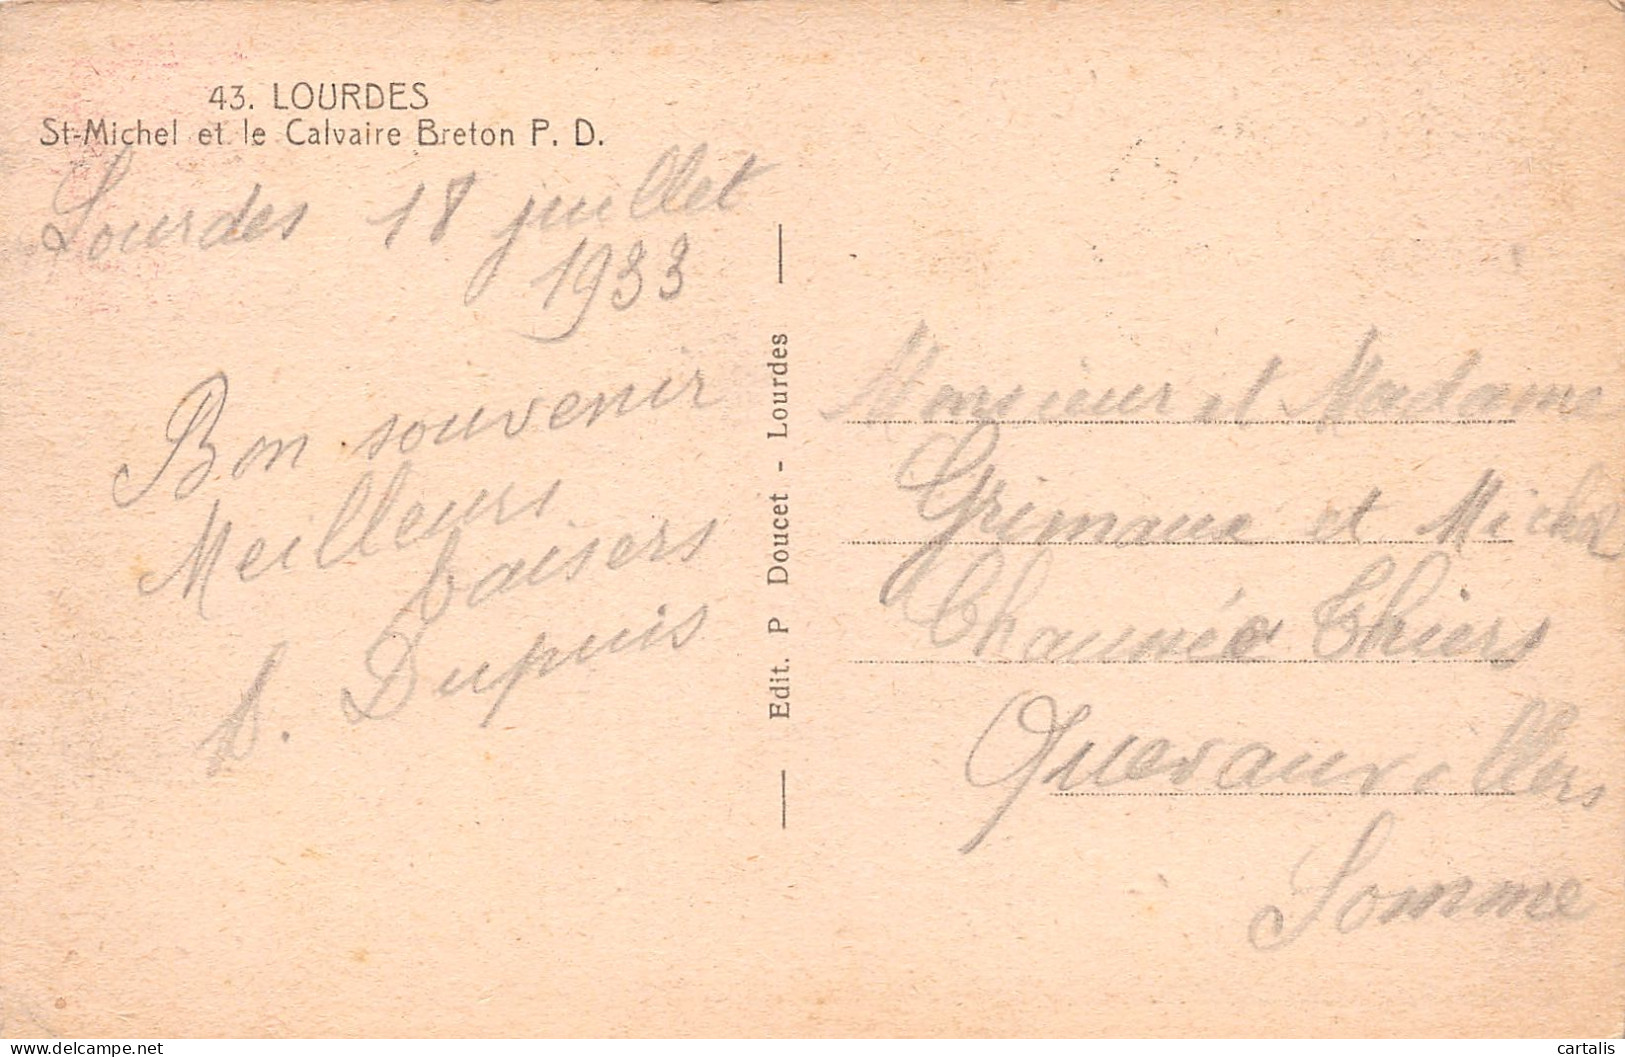 43. LOURDES
St-Michel et le Calvaire Breton P. D.
Lourdes 18 juillet
1933
Bon souvenir
Meilleurs
baisers
A. Dupuis
Edit. P Doucet - Lourdes
Monsieur et Madame
Grimaux et Michel
Chaussée Thiers
Quevauvillers
Somme
cartalis